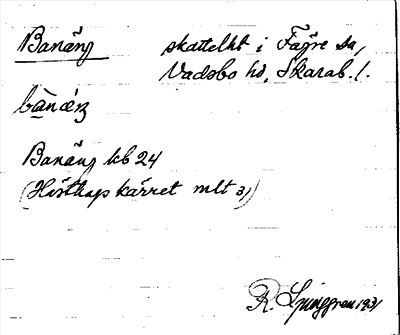 Banäng skattelht i Fägre sn,
Vadsbo hd, Skarab. l.
bànǽŋ
Banäng kb 24
(Hästhagskärret mlt 3))
R. Ljunggren 1931